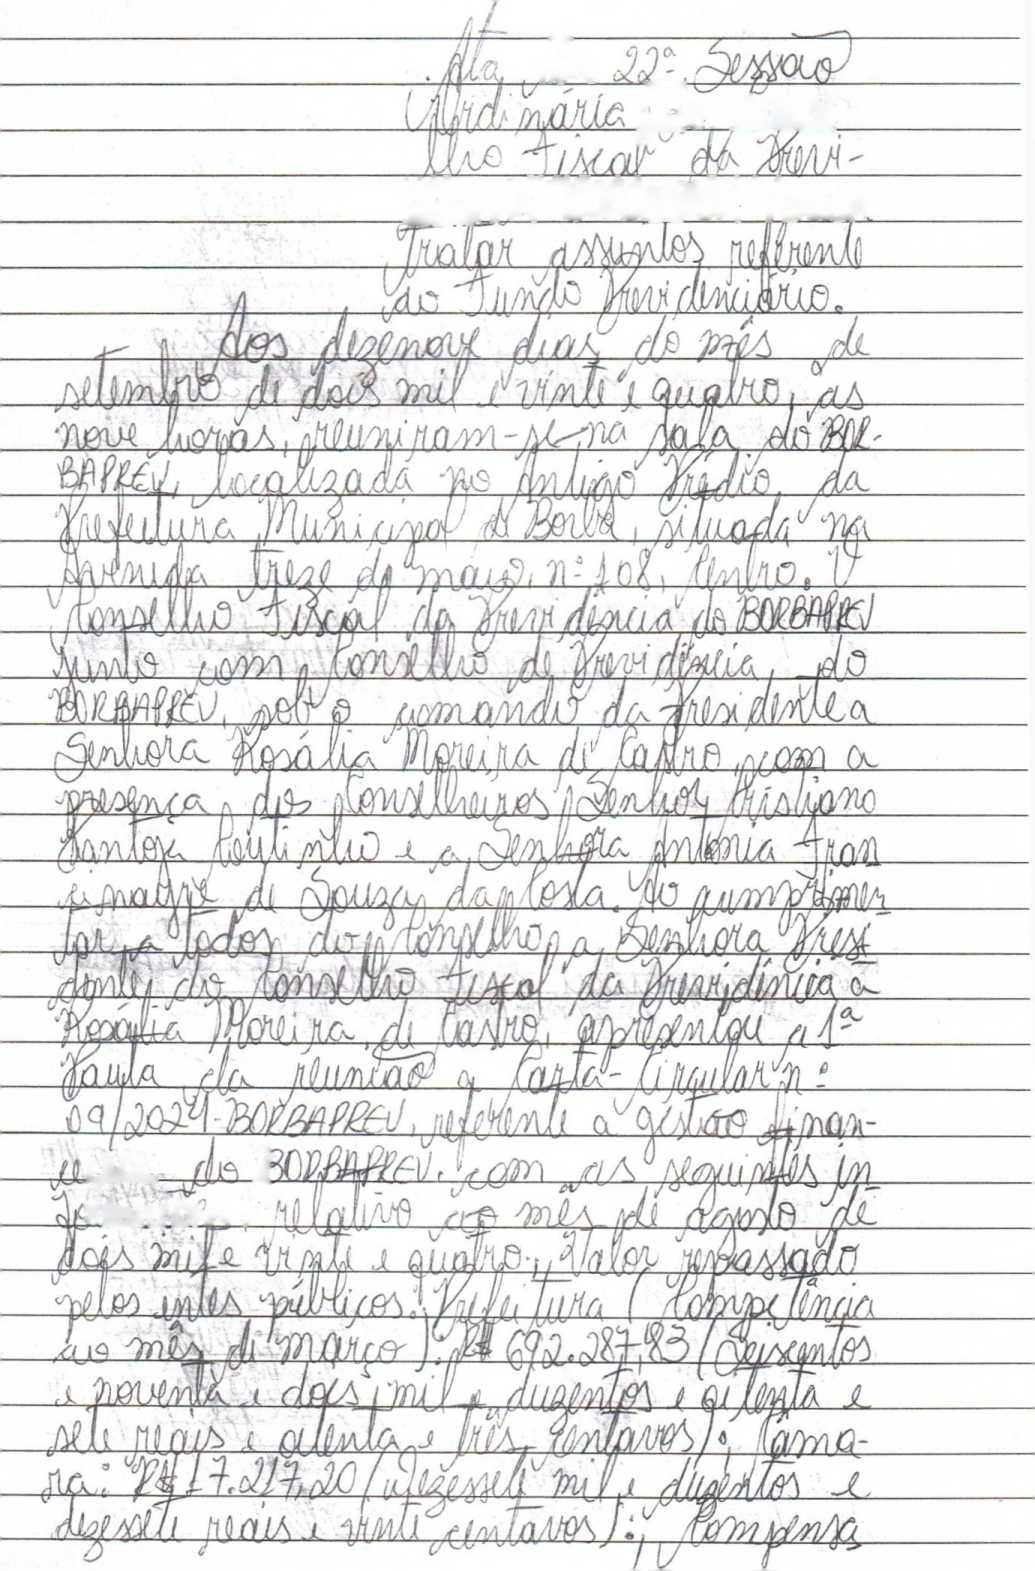 Ata 22ª Sessão
Ordinária
lho Fiscal da Previ-
Tratar assuntos referente
ao Fundo Previdenciário.
Aos dezenove dias do mês de
setembro de dois mil e vinte e quatro, as
nove horas, reuniram-se na sala do BOR-
BAPREV, localizada no Antigo Prédio da
Prefeitura Municipal de Borba, situada na
Avenida treze de maio, nº 108, Centro. O
Conselho Fiscal da Previdência do BORBAPREV
junto com Conselho de Previdência do
BORBAPREV, sob o comando da Presidente a
Senhora Rosália Moreira de Castro, com a
presença dos Conselheiros Senhor Cristiano
Coutinho e a Senhora Antonia Fran
de Souza da Costa. Ao cumprimen
tar a todos do Conselho, a Senhora Presi
dente do Conselho Fiscal da Previdência a
Rosália Moreira de Castro, apresentou a 1ª
Pauta da reunião a Carta-Circular nº
09/2024-BORBAPREV, referente a gestão finan-
ce do BORBAPREV. com as seguintes in
fo relativo ao mês de agosto de
dois mil e vinte e quatro. Valor repassado
pelos entes públicos: Prefeitura (Competência
ao mês de março): R$ 692.287,83 (Seiscentos
e noventa e dois mil e duzentos e oitenta e
sete reais e oitenta e três centavos); Câma-
ra: R$ 17.217,20 (dezessete mil e duzentos e
dezessete reais e vinte centavos):, Compensa